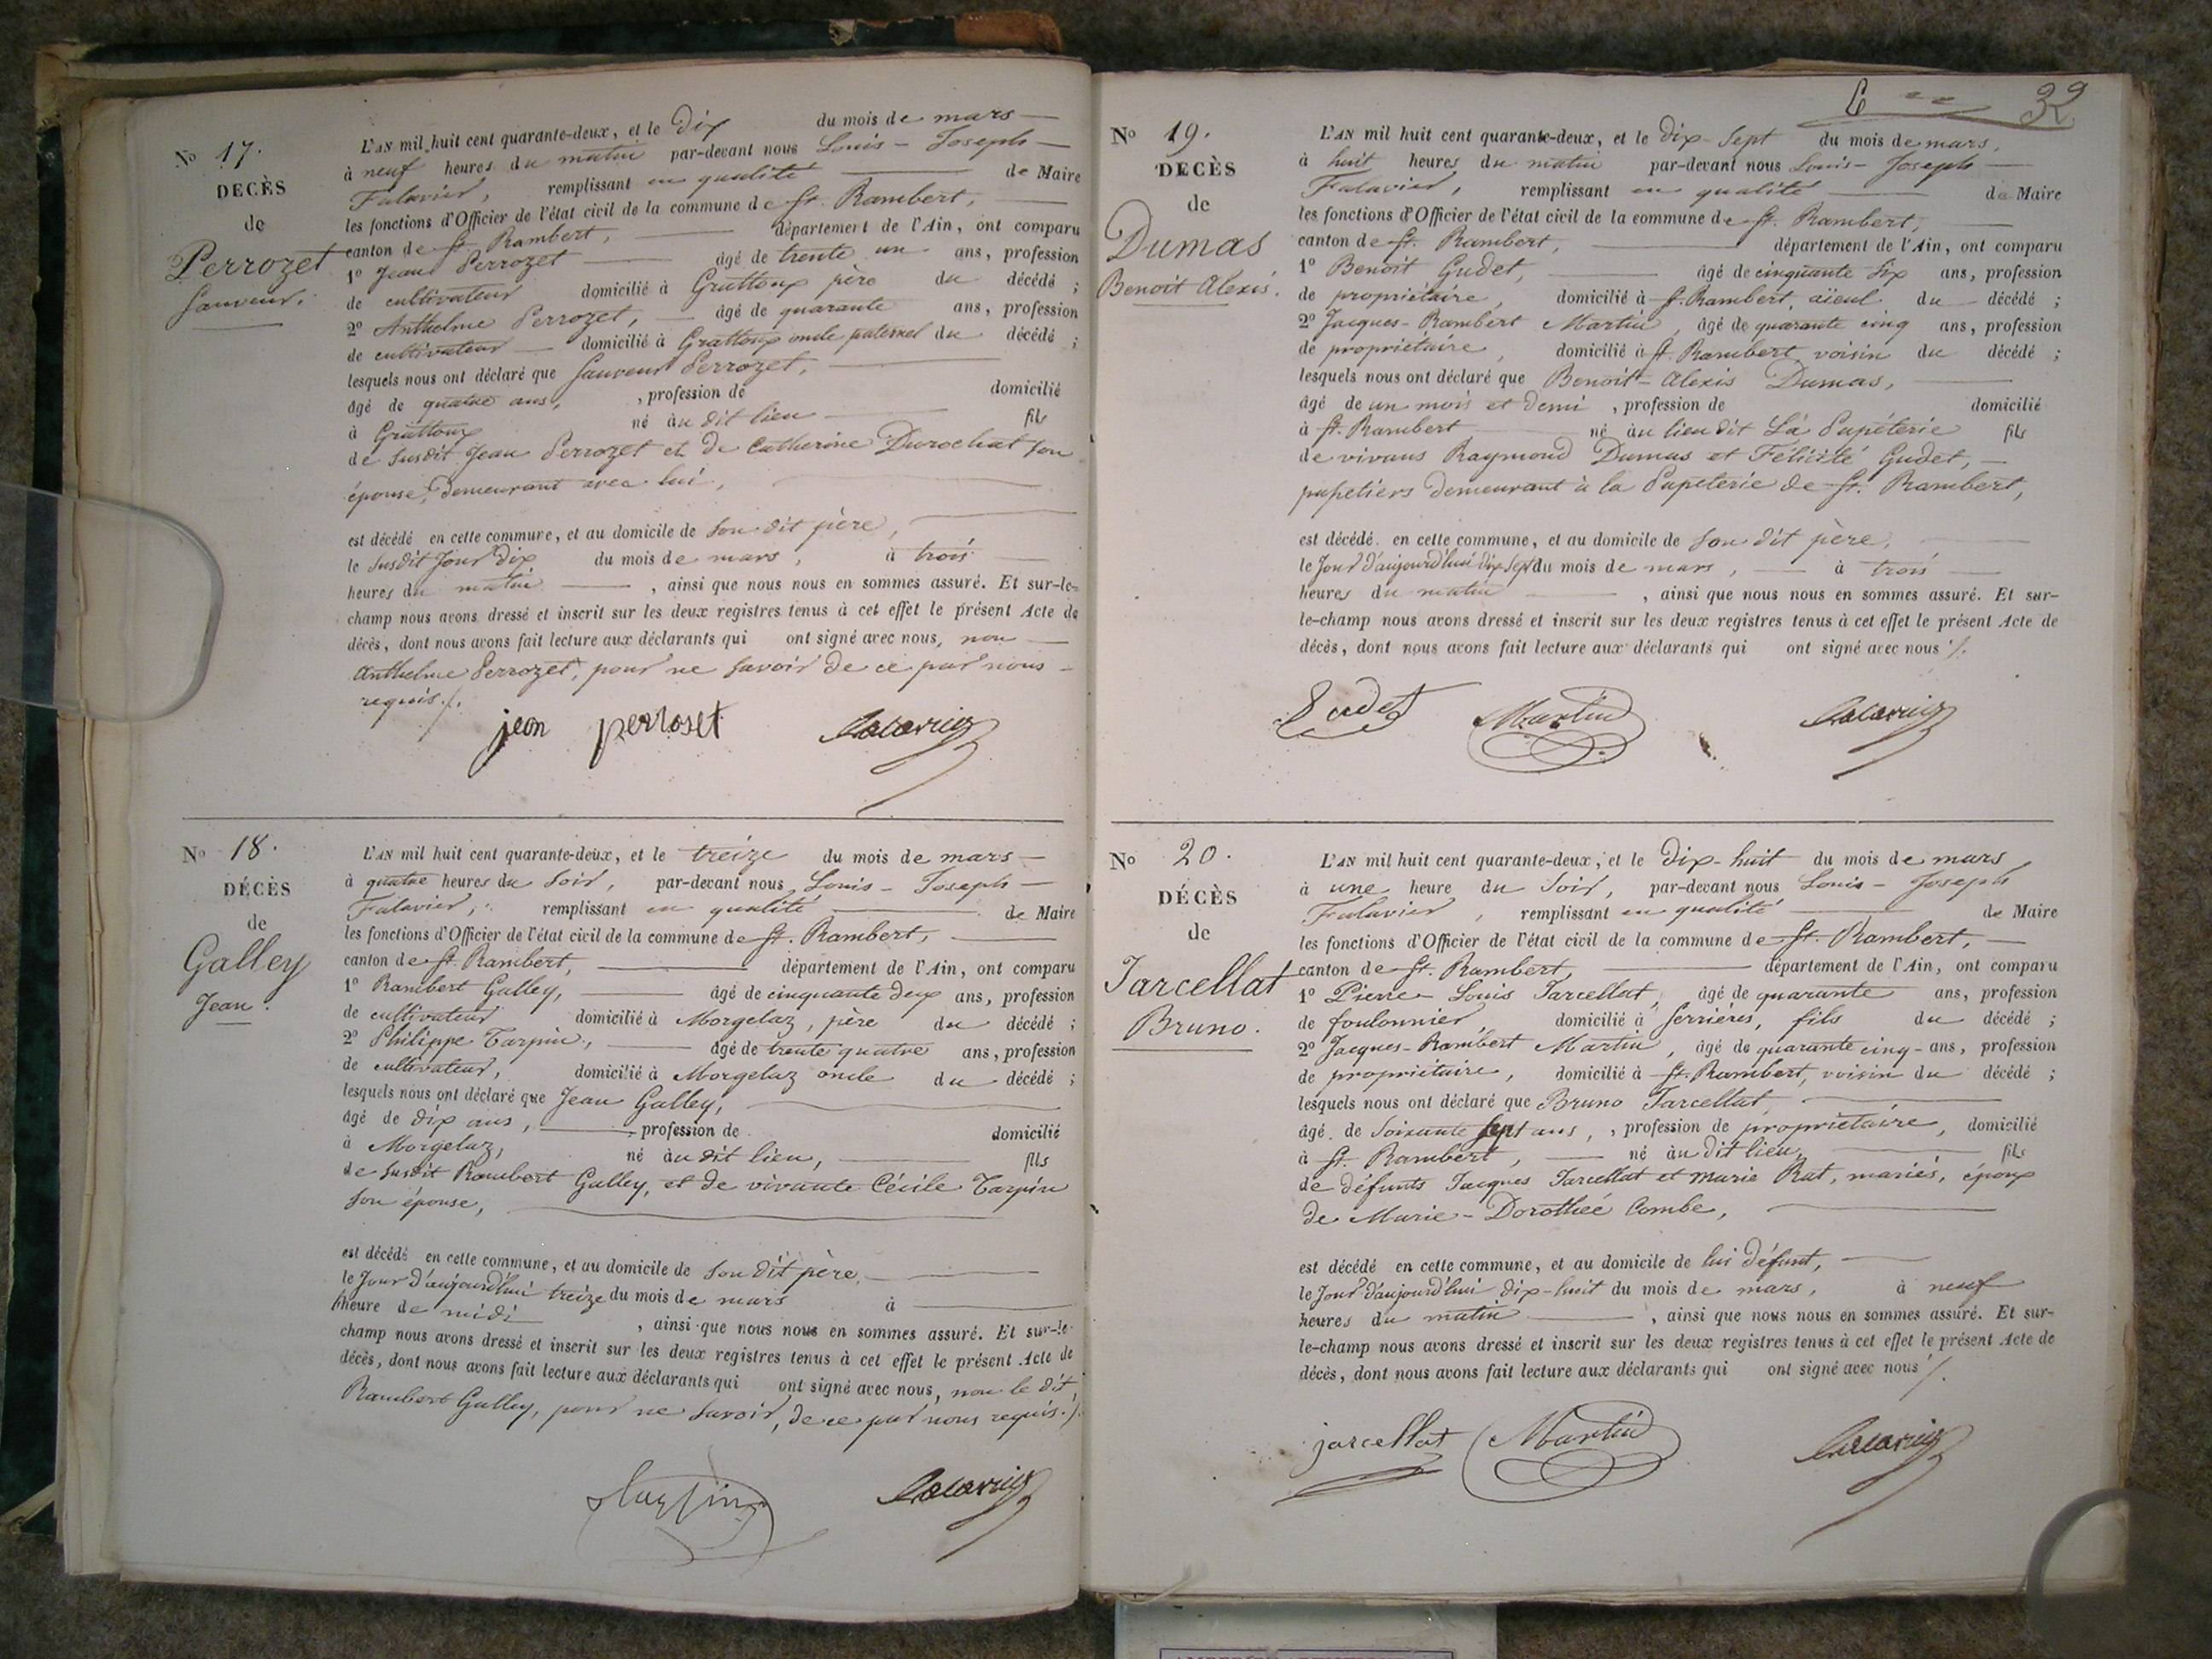 N° 17.
DECÈS
de
Perrozet
Sauveur.
L'AN mil huit cent quarante-deux, et le dix du mois de mars
à neuf heures du matin par-devant nous Louis-Joseph
Falavier, remplissant en qualité de Maire
les fonctions d'Officier de l'état civil de la commune de St. Rambert,
canton de St. Rambert, département de l'Ain, ont comparu
1° Jean Perrozet âgé de trente un ans, profession
de cultivateur domicilié à Grattoux père du décédé ;
2° Anthelme Perrozet, âgé de quarante ans, profession
de cultivateur domicilié à Grattoux oncle paternel du décédé ;
lesquels nous ont déclaré que Sauveur Perrozet,
âgé de quatre ans, , profession de domicilié
à Grattoux né au dit lieu fils
de susdit Jean Perrozet et de Catherine Durochat son
épouse, demeurant avec lui,
est décédé en cette commune, et au domicile de son dit père,
le susdit jour dix du mois de mars, à trois
heures du matin , ainsi que nous nous en sommes assuré. Et sur-le-
champ nous avons dressé et inscrit sur les deux registres tenus à cet effet le présent Acte de
décès, dont nous avons fait lecture aux déclarants qui ont signé avec nous, non
Anthelme Perrozet, pour ne savoir de ce par nous
requis./.
jean perroset
N° 18.
DÉCÈS
de
Galley
Jean.
L'AN mil huit cent quarante-deux, et le treize du mois de mars
à quatre heures du soir, par-devant nous Louis-Joseph
Falavier, remplissant en qualité de Maire
les fonctions d'Officier de l'état civil de la commune de St. Rambert,
canton de St. Rambert, département de l'Ain, ont comparu
1° Rambert Galley, âgé de cinquante deux ans, profession
de cultivateur domicilié à Morgelaz, père du décédé ;
2° Philippe Tarpin, âgé de trente quatre ans, profession
de cultivateur, domicilié à Morgelaz oncle du décédé ;
lesquels nous ont déclaré que Jean Galley,
âgé de dix ans, , profession de domicilié
à Morgelaz, né au dit lieu, fils
de susdit Rambert Galley, et de vivante Cécile Tarpin
son épouse,
est décédé en cette commune, et au domicile de son dit père,
le jour d'aujourd'hui treize du mois de mars à
heure de midi , ainsi que nous nous en sommes assuré. Et sur-le-
champ nous avons dressé et inscrit sur les deux registres tenus à cet effet le présent Acte de
décès, dont nous avons fait lecture aux déclarants qui ont signé avec nous, non le dit
Rambert Galley, pour ne savoir, de ce par nous requis./.
32
N° 19.
DECÈS
de
Dumas
Benoit Alexis.
L'AN mil huit cent quarante-deux, et le dix-sept du mois de mars,
à huit heures du matin par-devant nous Louis-Joseph
Falavier, remplissant en qualité de Maire
les fonctions d'Officier de l'état civil de la commune de St. Rambert,
canton de St. Rambert, département de l'Ain, ont comparu
1° Benoit Gudet, âgé de cinquante six ans, profession
de propriétaire, domicilié à St. Rambert, aïeul du décédé ;
2° Jacques-Rambert Martin, âgé de quarante cinq ans, profession
de propriétaire, domicilié à St. Rambert, voisin du décédé ;
lesquels nous ont déclaré que Benoit-Alexis Dumas,
âgé de un mois et demi , profession de domicilié
à St. Rambert né au lieu dit La Papéterie fils
de vivans Raymond Dumas et Félicité Gudet,
papetiers demeurant à la Papeterie de St. Rambert,
est décédé en cette commune, et au domicile de son dit père,
le jour d'aujourd'hui dix sept du mois de mars, à trois
heures du matin , ainsi que nous nous en sommes assuré. Et sur-
le-champ nous avons dressé et inscrit sur les deux registres tenus à cet effet le présent Acte de
décès, dont nous avons fait lecture aux déclarants qui ont signé avec nous./.
Gudet Martin
N° 20.
DÉCÈS
de
Jarcellat
Bruno.
L'AN mil huit cent quarante-deux, et le dix-huit du mois de mars
à une heure du soir, par-devant nous Louis-Joseph
Falavier, remplissant en qualité de Maire
les fonctions d'Officier de l'état civil de la commune de St. Rambert,
canton de St. Rambert, département de l'Ain, ont comparu
1° Pierre-Louis Jarcellat, âgé de quarante ans, profession
de foulonnier, domicilié à Serrières, fils du décédé ;
2° Jacques-Rambert Martin, âgé de quarante cinq ans, profession
de propriétaire, domicilié à St. Rambert, voisin du décédé ;
lesquels nous ont déclaré que Bruno Jarcellat,
âgé de soixante sept ans, , profession de propriétaire, domicilié
à St. Rambert, né au dit lieu, fils
de défunts Jacques Jarcellat et Marie Rat, mariés, époux
de Marie-Dorothée Combe,
est décédé en cette commune, et au domicile de lui défunt,
le jour d'aujourd'hui dix-huit du mois de mars, à neuf
heures du matin , ainsi que nous nous en sommes assuré. Et sur-
le-champ nous avons dressé et inscrit sur les deux registres tenus à cet effet le présent Acte de
décès, dont nous avons fait lecture aux déclarants qui ont signé avec nous./.
jarcellat Martin